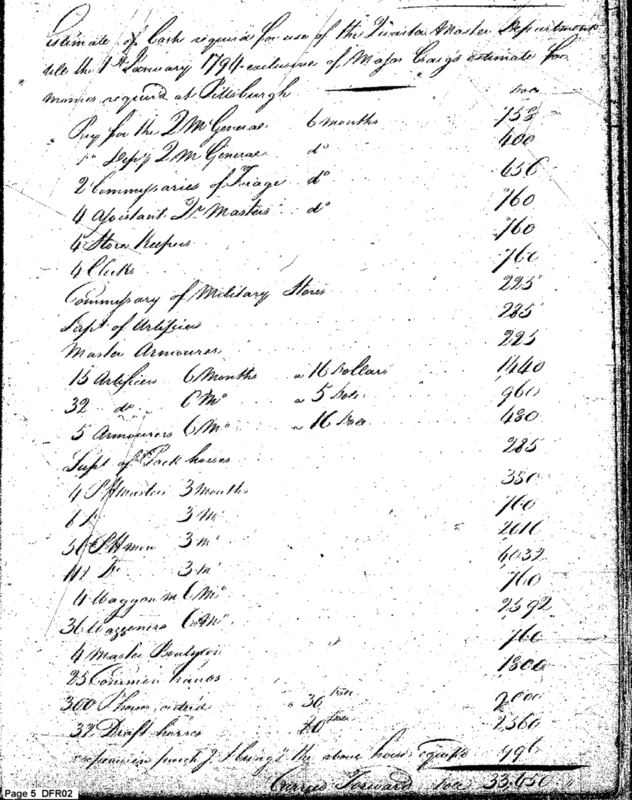 Estimate of Cash required for use of the Quarter Master Department
till the 1st January 1794 exclusive of Major Craig's estimate for
monies required at Pittsburgh
Pay for the Q M General 6 months 753
Depy Q M General do 400
2 Commissaries of Forage do 656
4 Assistant Qr Masters do 760
4 Store Keepers 760
4 Clerks 760
Commissary of Military Stores 225
Supt of Artificers 225
Master Armourer 225
15 Artificers 6 Months a 16 Dollars 1440
32 do 6 Mo a 5 Dols 960
5 Armourers 6 Mo a 16 480
Supt of Pack horses 285
4 P H Masters 3 months 380
8 3 Mo 760
3 Mo 2016
3 Mo 4032
4 Waggon M 6 Mo 760
36 Waggoners 6 Mo 2592
4 Master 760
25 Common hands 1800
300 P horses a 30
Draft horses
the above horses
Carried Forward 33,650
Page 5 DFR02